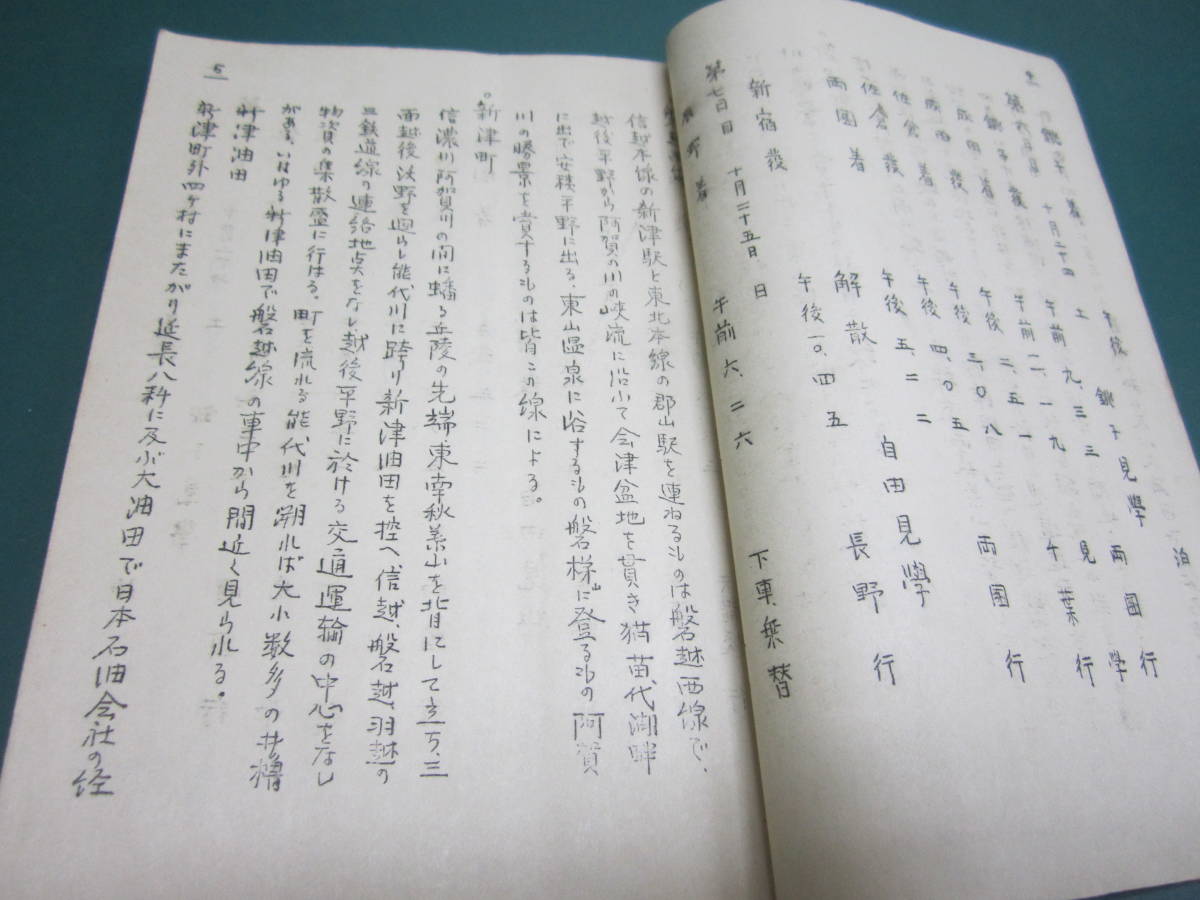 銚子着 午後 銚子見學 泊
第六日目 十月二十四日 土
銚子發 午前 九、三三 千葉行
成田着 午前 一一、一九 見學
成田發 午後 二、五一 両国行
佐倉着 午後 三、〇八
佐倉發 午後 四、〇五 両国行
両国着 午後 五、二二 自由見學
解散
新宿發 午後一〇、四五 長野行
第七日目 十月二十五日 日
長野着 午前六、二六 下車、乗替
5
信越本線の新津駅と東北本線の郡山駅を連ねるものは磐越西線で、
越後平野から阿賀の川の峡流に沿小て会津盆地を貫き猫苗代湖畔
に出で安積平野に出る。東山温泉に浴するもの磐梯山に登るもの阿賀
川の勝景を賞するものは皆この線による。
○新津町
信濃川阿賀川の間に蟠る丘陵の先端、東南秋葉山を背にして立ち、三
面越後沃野を廻らし能代川に跨り新津油田を控へ、信越、磐越、羽越の
三鉄道線の連絡地点をなし越後平野に於ける交通運輸の中心をなし
物資の集散盛に行はる。町を流れる能代川を溯れば大小数多の井櫓
がある。いはゆる新津油田で磐越線の車中から間近く見られる。
新津油田
新津町外四ヶ村にまたがり延長八粁に及ぶ大油田で日本石油会社の経